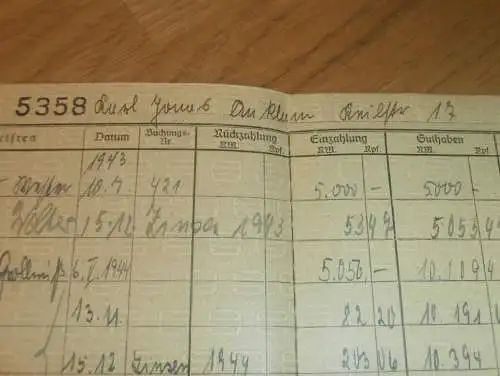 5358 Karl Jonas Anklam Keilstr 17
Datum Buchungs-Nr. Rückzahlung RM. Rpf. Einzahlung RM. Rpf. Guthaben RM.
1943
10.7. 421 5.000 – 5000 –
Wolter 15.12 Zinsen 1943 53 47 5.053 47
6.V.1944 5.056,– 10.109 4
13.11. 82 20 10.191 6
15.12 Zinsen 1944 203 06 10.394